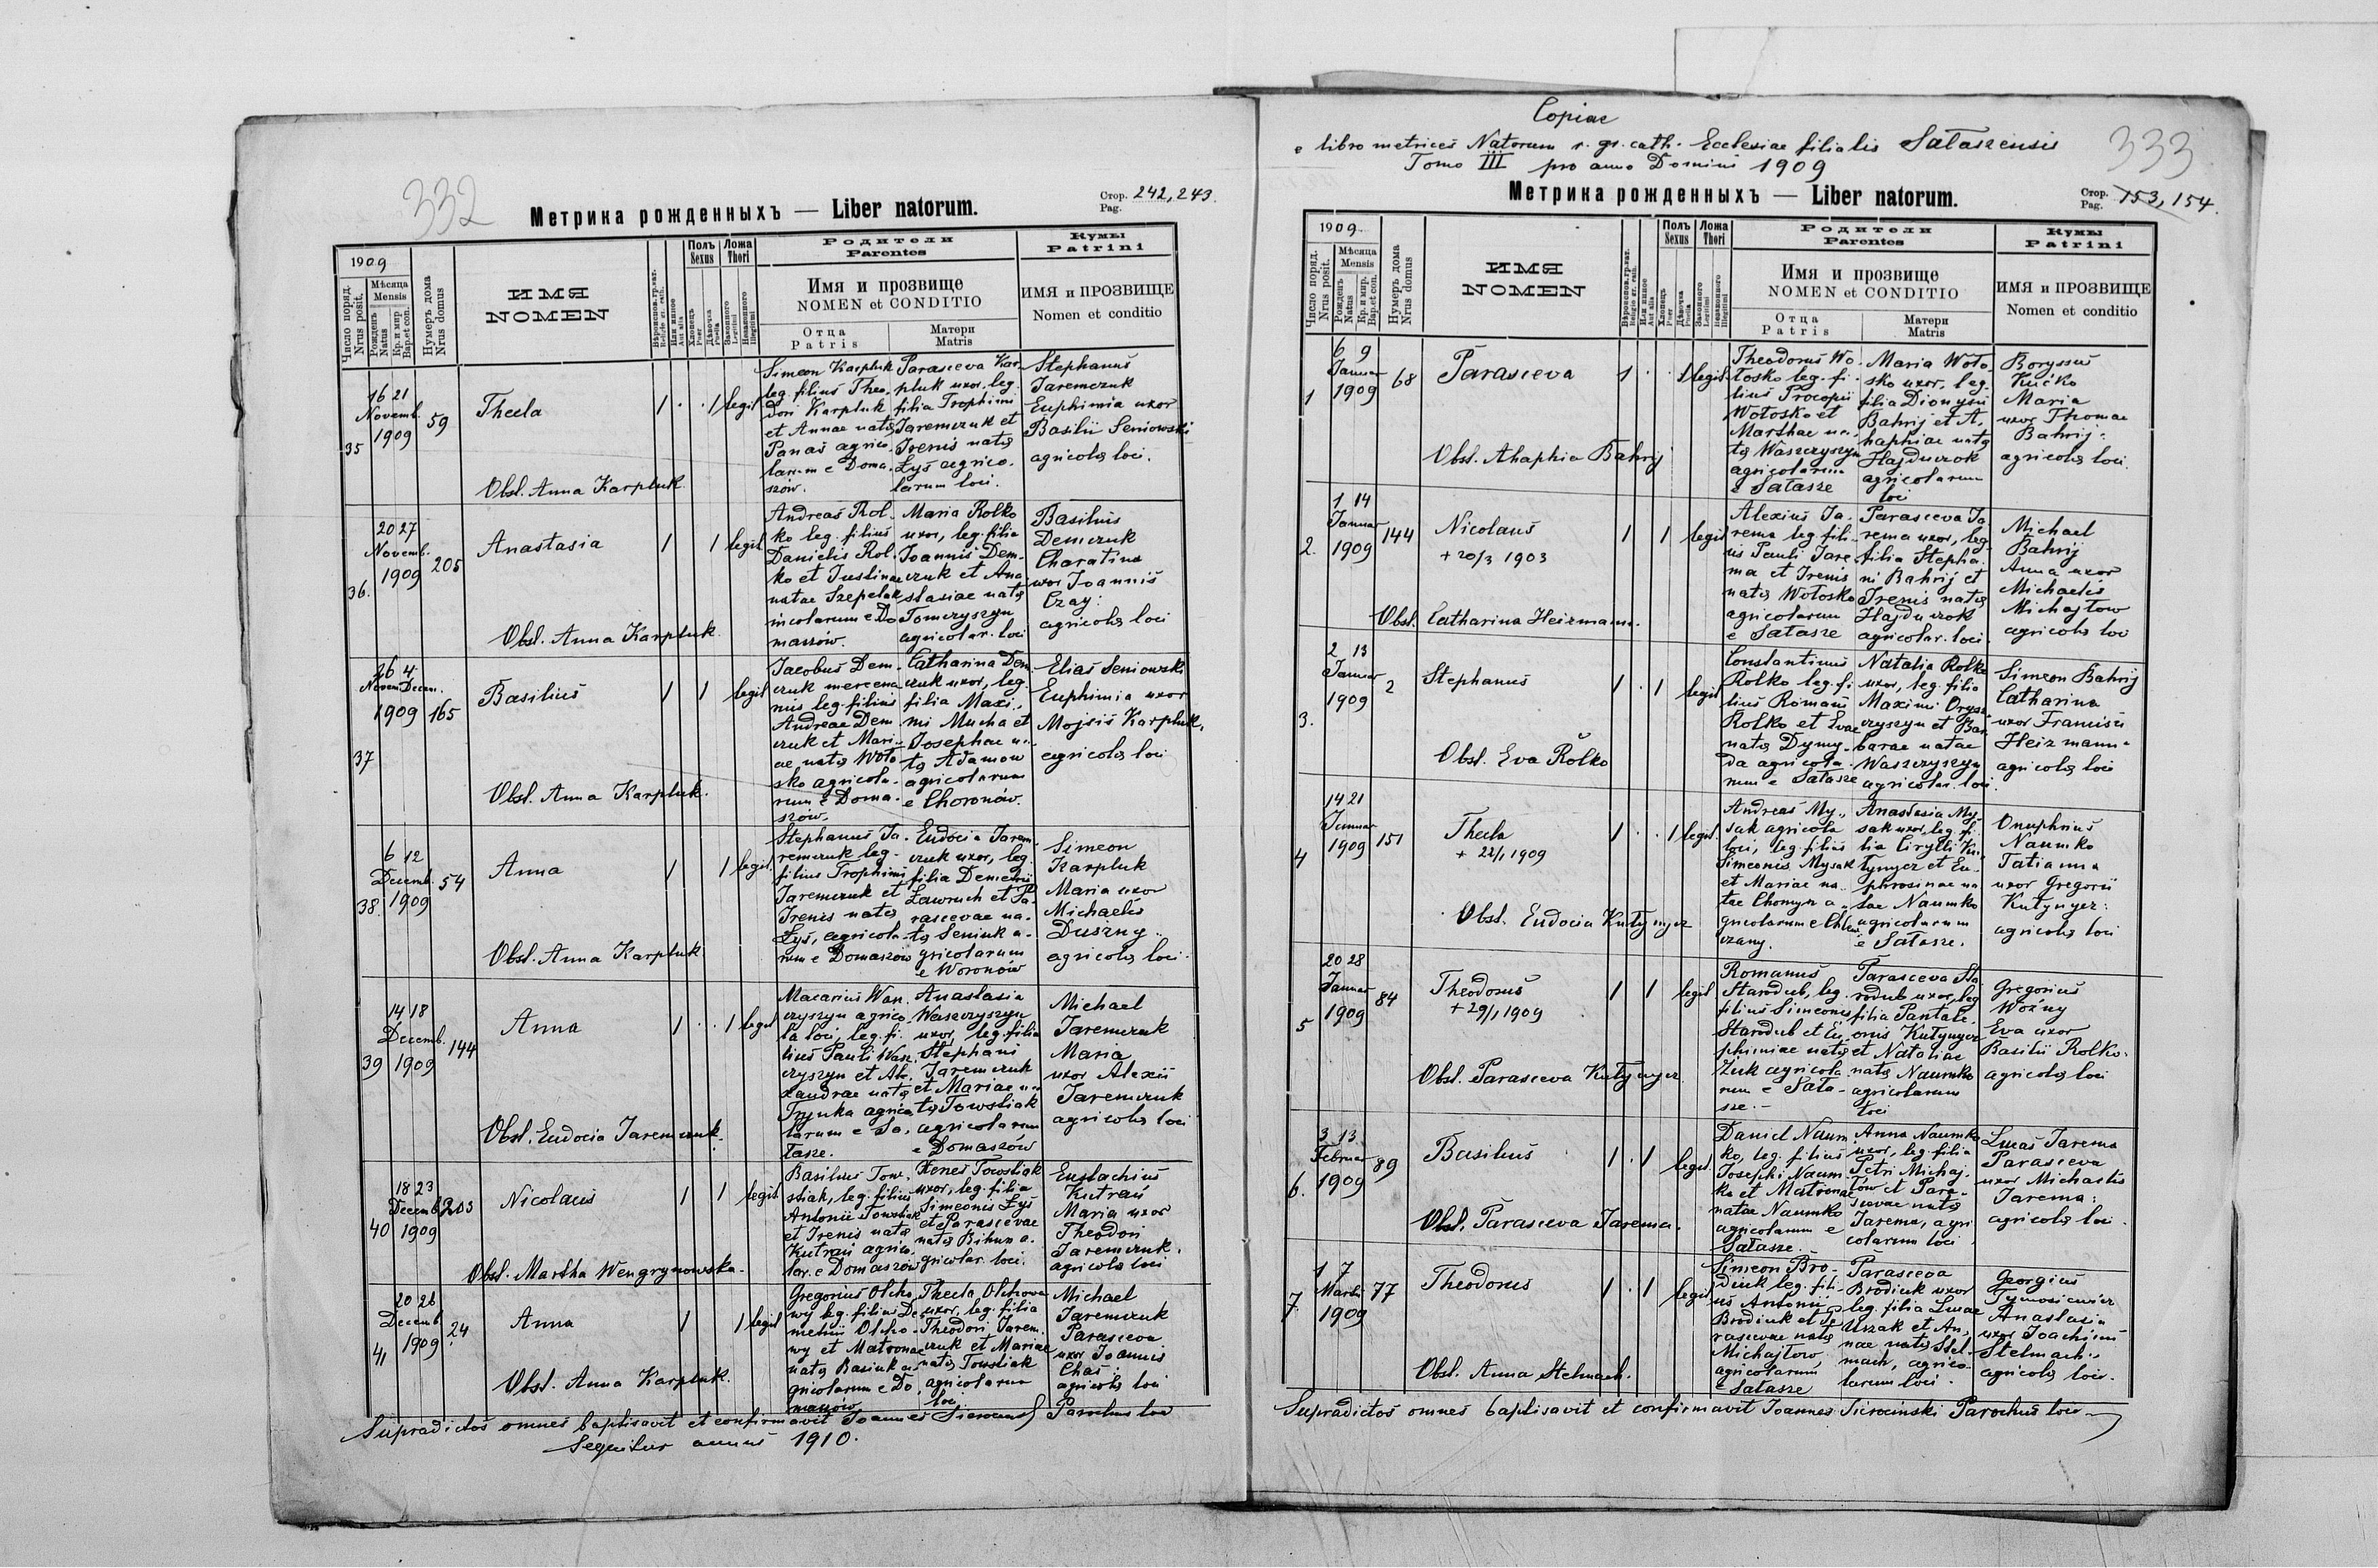 332
Метрика рожденныхъ — Liber natorum.
Стор. Pag. 242, 243.
1909
Число поряд. Nrus posit.
Мѣсяца Mensis
Рожденъ Natus
Кр. и мир Bap. et con.
Нумеръ дома Nrus domus
ИМЯ
NOMEN
Полъ Sexus
Ложа Thori
Родители
Parentes
Имя и прозвище
NOMEN et CONDITIO
Отца Patris
Матери Matris
Кумы
Patrini
ИМЯ и ПРОЗВИЩЕ
Nomen et conditio
35
16 21
Novemb.
1909
59
Thecla
1 . . 1 legit
Obst. Anna Karpluk
Simeon Karpluk
leg. filius Theo-
dori Karpluk
et Annae natę
Panas agrico-
larum e Doma-
szów.
Parasceva Kar-
pluk uxor, leg.
filia Trophimi
Jaremczuk et
Irenis natę
Łyś agrico-
larum loci.
Stephanus
Jaremczuk
Euphimia uxor
Basilii Seniowski
agricolę loci.
36.
20 27
Novemb.
1909
205
Anastasia
1 1 legit
Obst. Anna Karpluk
Andreas Rol-
ko leg. filius
Danielis Rol-
ko et Justinae
natae Szepelak
incolarum e Do
maszów.
Maria Rolko
uxor, leg. filia
Joannis Dem-
czuk et Ana
stasiae natę
Tomczyszyn
agricolar. loci
Basilius
Demczuk
Charatina
uxor Joannis
Czay:
agricolę loci
37
26 4
Novem Decem.
1909
165
Basilius
1 1 legit
Obst. Anna Karpluk.
Jacobus Dem-
czuk mercena
rius leg. filius
Andreae Dem
czuk et Mari-
ae natę Woło
sko agricola-
rum e Doma-
szów.
Catharina Dem
czuk uxor, leg.
filia Maxi-
mi Mucha et
Josephae na-
tę Adamow
agricolarum
e Choronów.
Elias Seniowski
Euphimia uxor
Mojsis Karpluk,
agricolę loci
38.
6 12
Decemb.
1909
54
Anna
1 1 legit.
Obst. Anna Karpluk
Stephanus Ja-
remczuk leg-
filius Trophimi
Jaremczuk et
Irenis natę
Łyś, agricola-
rum e Domaszów
Eudocia Jarem
czuk uxor, leg.
filia Demetrii
Ławruch et Pa-
rascevae na-
tę Seniuk a-
gricolarum
e Woronów
Simeon
Karpluk
Maria uxor
Michaelis
Duszny..
agricolę loci
39
14 18
Decemb.
1909
144
Anna
1 . . 1 legit
Obst. Eudocia Jaremczuk.
Macarius Wasz
czyszyn agrico
la loci, leg. fi-
lius Pauli Wasz
czyszyn et Ale-
xandrae natę
Trynka agrico
larum e Sa-
łasze.
Anastasia
Waszczyszyn
uxor, leg. filia
Stephani
Jaremczuk
et Mariae na
tę Towstiak
agricolarum
e Domaszów
Michael
Jaremczuk
Maria
uxor Alexii
Jaremczuk
agricolę loci
40
18 23
Decemb.
1909
203
Nicolaus
1 1 legit
Obst. Martha Wengrynowska.
Basilius Tow-
stiak, leg. filius
Antonii Towstiak
et Irenis natę
Kutrań agrico-
lar. e Domaszów
Xenes Towstiak
uxor, leg. filia
Simeonis Łyś
et Parascevae
natę Bihun a-
gricolar. loci.
Eustachius
Kutrań
Maria uxor
Theodori
Jaremczuk.
agricolę loci
41
20 26
Decemb.
1909
24
Anna
1 1 legit
Obst. Anna Karpluk.
Gregorius Olcho
wy leg. filius De
metrii Olcho-
wy et Matronae
natę Basiuk a-
gricolarum e Do
maszów
Thecla Olchowa
uxor, leg. filia
Theodori Jarem
czuk et Mariae
natę Towstiak
agricolarum
loci
Michael
Jaremczuk
Parasceva
uxor Joannis
Chaś
agricolę loci
Supradictos omnes baptisavit et confirmavit Joannes Sierocinski Parochus loci
Sequitur annus 1910.
Copiae
e libro metrices Natorum r. gr. cath. Ecclesiae filialis Sałaszensis
Tomo III pro anno Domini 1909
333
Метрика рожденныхъ — Liber natorum.
Стор. Pag. 153, 154.
1909
Число поряд. Nrus posit.
Мѣсяца Mensis
Рожденъ Natus
Кр. и мир. Bap. et con.
Нумеръ дома Nrus domus
ИМЯ
NOMEN
Полъ Sexus
Ложа Thori
Родители
Parentes
Имя и прозвище
NOMEN et CONDITIO
Отца Patris
Матери Matris
Кумы
Patrini
ИМЯ и ПРОЗВИЩЕ
Nomen et conditio
1
6 9
Januar
1909
68
Parasceva
1 . . 1 legit
Obst. Ahaphia Bahrij
Theodorus Wo-
łosko leg. fi-
lius Procopii
Wołosko et
Marthae na-
tę Waszczyszyn
agricolarum
e Sałasze
Maria Woło-
sko uxor, leg.
filia Dionysii
Bahrij et A-
haphiae natę
Hajduczok
agricolarum
loci
Boryssus
Kućko
Maria
uxor Thomae
Bahrij:
agricolę loci.
2.
1 14
Januar
1909
144
Nicolaus
+ 20/3 1903
1 1 legit
Obst. Catharina Heizmann.
Alexius Ja-
rema leg. fili-
us Pauli Jare-
ma et Irenis
natę Wołosko
agricolarum
e Sałasze
Parasceva Ja
rema uxor, leg
filia Stepha-
ni Bahrij et
Irenis natę
Hajduczok
agricolar. loci
Michael
Bahrij
Anna uxor
Michaelis
Michajłow
agricolę loci
3.
2 13
Januar
1909
2
Stephanus
1 . 1 legit
Obst. Eva Rolko
Constantinus
Rolko leg. fi-
lius Romani
Rolko et Evae
natę Dymy-
da agricola-
rum e Sałasze
Natalia Rolko
uxor, leg. filia
Maximi Orysz
czyszyn et Bar-
barae natae
Waszczyszyn
agricolar. loci.
Simeon Bahrij
Catharina
uxor Francisci
Heizmann.
agricolę loci
4
14 21
Januar
1909
151
Thecla
+ 22/1 1909
1 . . 1 legit.
Obst. Eudocia Kutynycz
Andreas My-
sak agricola
loci, leg. filius
Simeonis Mysak
et Mariae na-
tae Chomyn a-
gricolarum e Chlew
czany.
Anastasia My-
sak uxor, leg. fi-
lia Cirylli Ku-
tynycz et Eu-
phrosinae na
tae Naumko
agricolarum
e Sałasze.
Onuphrius
Naumko
Tatianna
uxor Gregorii
Kutynycz:
agricolę loci
5
20 28
Januar
1909
84
Theodorus
+ 29/1 1909
1 1 legit
Obst. Parasceva Kutynycz
Romanus
Starodub, leg.
filius Simeonis
Starodub et Eu-
phimiae natę
Żuk agricola
rum e Sała-
sze. -
Parasceva Sta
rodub uxor, leg
filia Pantale-
onis Kutynycz
et Nataliae
natę Naumko
agricolarum
loci
Gregorius
Woźny
Eva uxor
Basilii Rolko.
agricolę loci
6.
3 13
Februar
1909
89
Basilius
1 . 1 legit.
Obst. Parasceva Jarema.
Daniel Naum
ko, leg. filius
Josephi Naum-
ko et Matronae
natae Naumko
agricolarum e
Sałasze.
Anna Naumko
uxor, leg. filia
Petri Michaj-
łów et Para-
scevae natę
Jarema, agri
colarum loci
Lucas Jarema
Parasceva
uxor Michaelis
Jarema:
agricolę loci.
7.
1 7
Martii
1909
77
Theodorus
1 . 1 legit
Obst. Anna Stelmach.
Simeon Bro-
diuk leg. fili-
us Antonii
Brodiuk et Pa-
rascevae natę
Michajłow
agricolarum
e Sałasze
Parasceva
Brodiuk uxor
leg. filia Lucae
Uszak et An-
nae natę Stel-
mach, agrico-
larum loci.
Georgius
Tymosiewicz
Anastasia
uxor Joachimi
Stelmach:
agricolę loci.
Supradictos omnes baptisavit et confirmavit Joannes Sierocinski Parochus loci